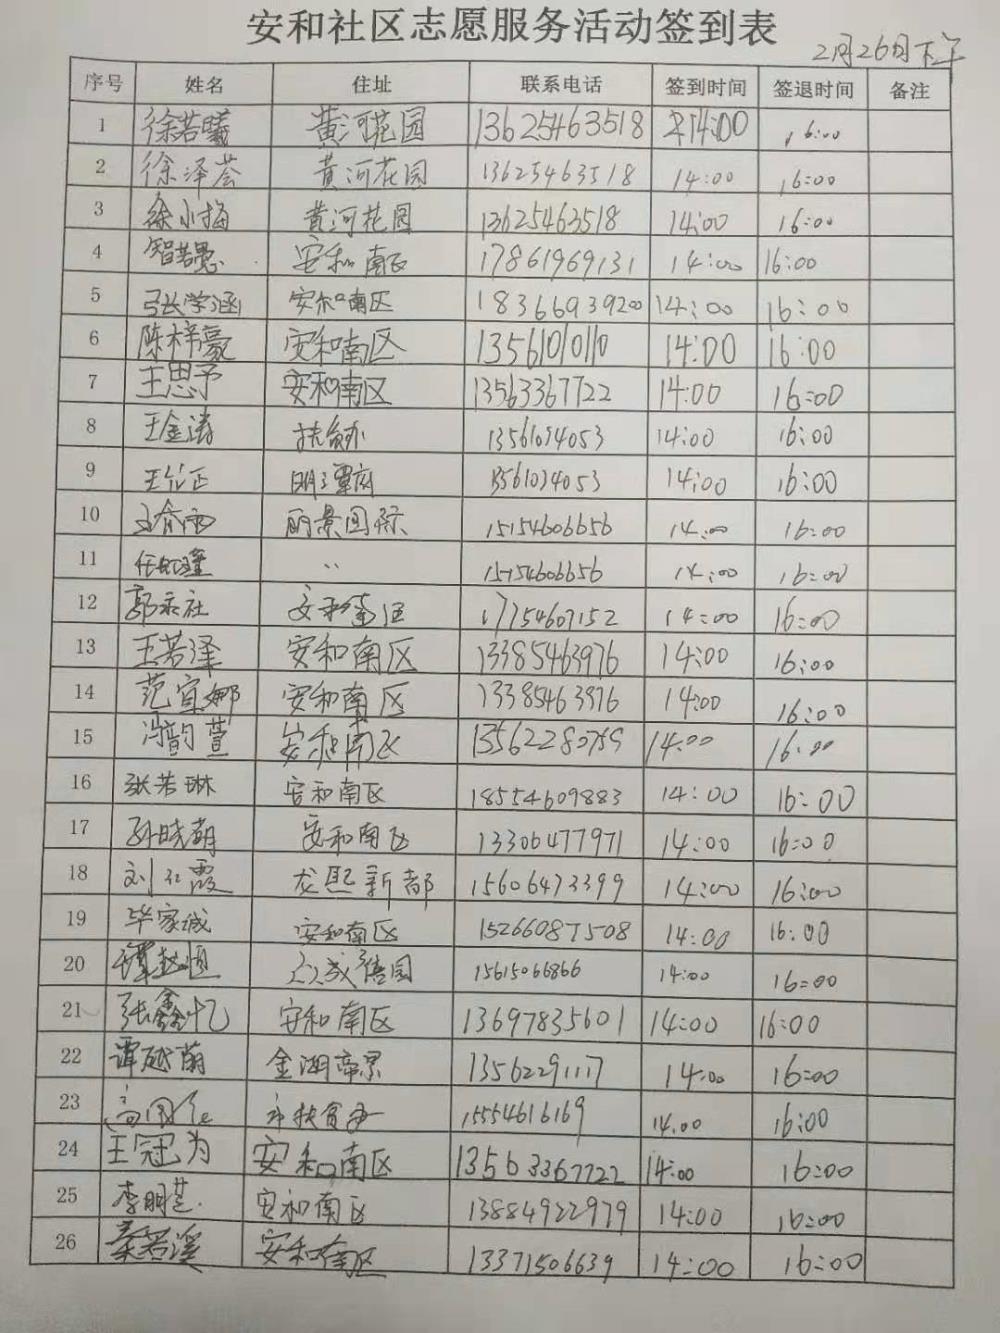 安和社区志愿服务活动签到表
2月26日下午
序号 姓名 住址 联系电话 签到时间 签退时间 备注
1 徐若曦 黄河花园 13625463518 14:00 16:00
2 徐泽荟 黄河花园 13625463518 14:00 16:00
3 徐小梅 黄河花园 13625463518 14:00 16:00
4 智若愚 安和南区 17861969131 14:00 16:00
5 张学涵 安和南区 18366939200 14:00 16:00
6 陈梓豪 安和南区 13561010110 14:00 16:00
7 王思予 安和南区 13563367722 14:00 16:00
8 王金涛 扶贫办 13561094053 14:00 16:00
9 14:00 16:00
10 丽景国际 15154606656 14:00 16:00
11 15154606656 14:00 16:00
12 安和南区 17754607152 14:00 16:00
13 王若泽 安和南区 13385463976 14:00 16:00
14 范宜娜 安和南区 13385463976 14:00 16:00
15 冯韵萱 安和南区 13562280759 14:00 16:00
16 张若琳 安和南区 18554609883 14:00 16:00
17 孙晓萌 安和南区 13306477971 14:00 16:00
18 刘红霞 龙熙新都 15606473399 14:00 16:00
19 毕家诚 安和南区 15266087508 14:00 16:00
20 15615066866 14:00 16:00
21 张鑫忆 安和南区 13697835601 14:00 16:00
22 金湖帝景 13562291117 14:00 16:00
23 15554616169 14:00 16:00
24 王冠为 安和南区 13563367722 14:00 16:00
25 李明芝 安和南区 13884922979 14:00 16:00
26 秦若溪 安和南区 13371506639 14:00 16:00